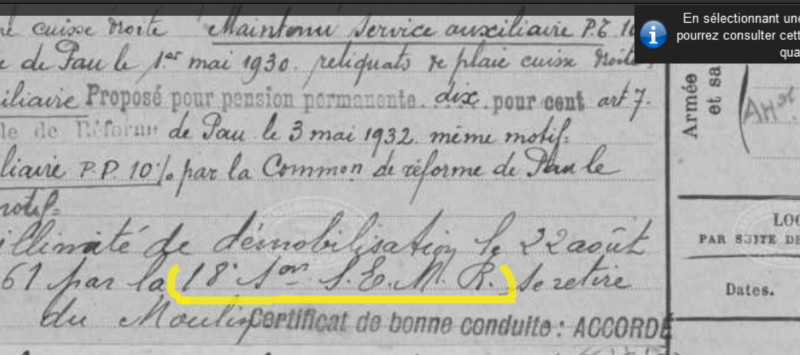 cuisse droite Maintenu service auxiliaire P.T. 10
e de Pau le 1er mai 1930. reliquats de plaie cuisse droite
iliaire Proposé pour pension permanente dix pour cent art 7.
le de Réforme de Pau le 3 mai 1932. même motif.
liaire P.P. 10% par la Common de réforme de Pau le
motif.
illimité de démobilisation le 22 août
61 par la 18e Son S.E.M.R. se retire
du Moulin Certificat de bonne conduite : ACCORDÉ
En sélectionnant une
pourrez consulter cett
qua
Armée
et sa
LOC
PAR SUITE DE
Dates.